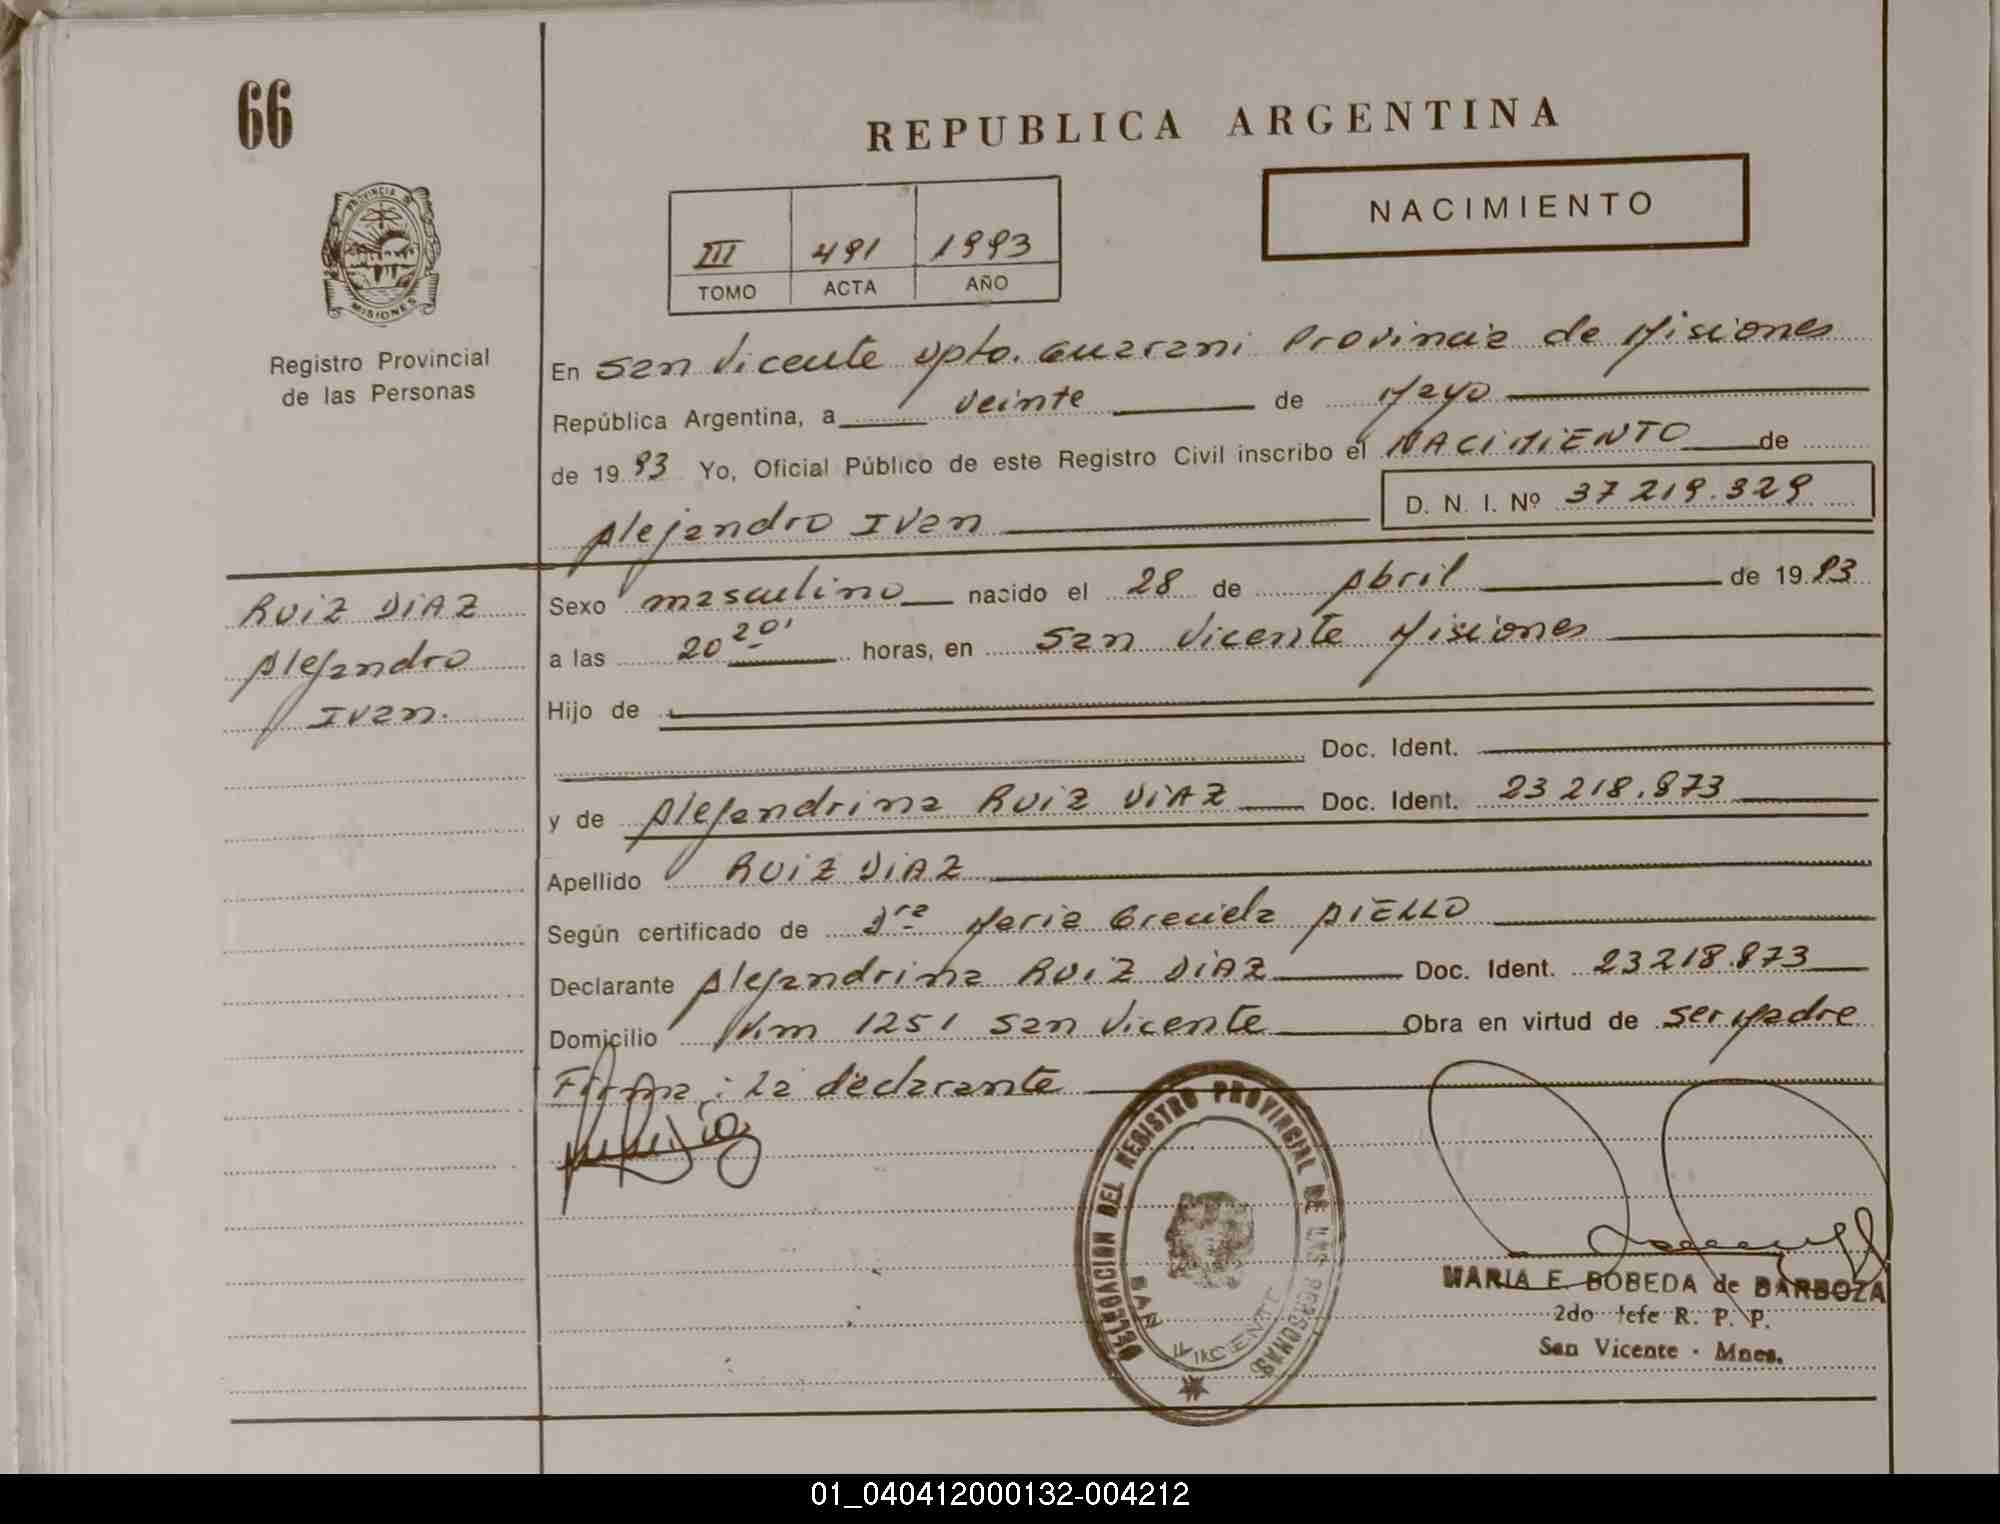 66
REPUBLICA ARGENTINA
NACIMIENTO
III 491 1993
TOMO ACTA AÑO
PROVINCIA DE MISIONES
Registro Provincial
de las Personas
En San Vicente Dpto. Guarani Provincia de Misiones
República Argentina, a veinte de Mayo
de 1993 Yo, Oficial Público de este Registro Civil inscribo el NACIMIENTO de
Alejandro Ivan D. N. I. Nº 37 219.329
RUIZ DIAZ
Alejandro
Ivan.
Sexo masculino nacido el 28 de Abril de 1993
a las 20 20' horas, en San Vicente Misiones
Hijo de
Doc. Ident.
y de Alejandrina RUIZ DIAZ Doc. Ident. 23 218.873
Apellido RUIZ DIAZ
Según certificado de Dra Maria Graciela AIELLO
Declarante Alejandrina RUIZ DIAZ Doc. Ident. 23 218.873
Domicilio Km 1251 San Vicente Obra en virtud de ser Madre
Firma: La declarante
DELEGACION DEL REGISTRO PROVINCIAL DE LAS PERSONAS
SAN VICENTE
MARIA E. BOBEDA de BARBOZA
2do Jefe R. P. P.
San Vicente - Mnes.
01_040412000132-004212